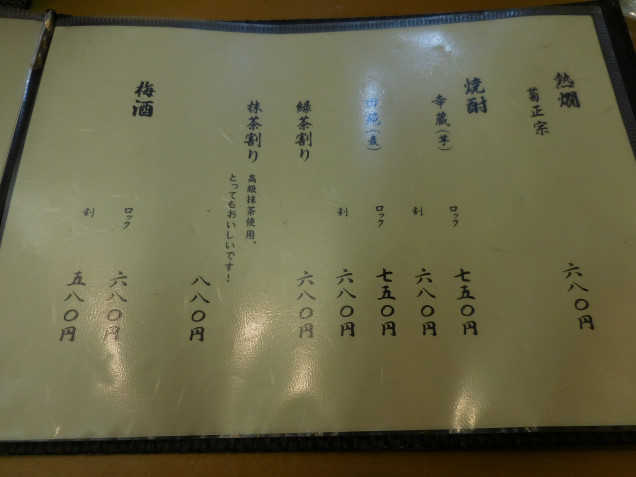 熱燗
菊正宗
六八〇円
焼酎
幸蔵(芋)
ロック
七五〇円
割
六八〇円
(麦)
ロック
七五〇円
割
六八〇円
緑茶割り
六八〇円
抹茶割り
高級抹茶使用。
とってもおいしいです!
八八〇円
梅酒
ロック
六八〇円
割
五八〇円